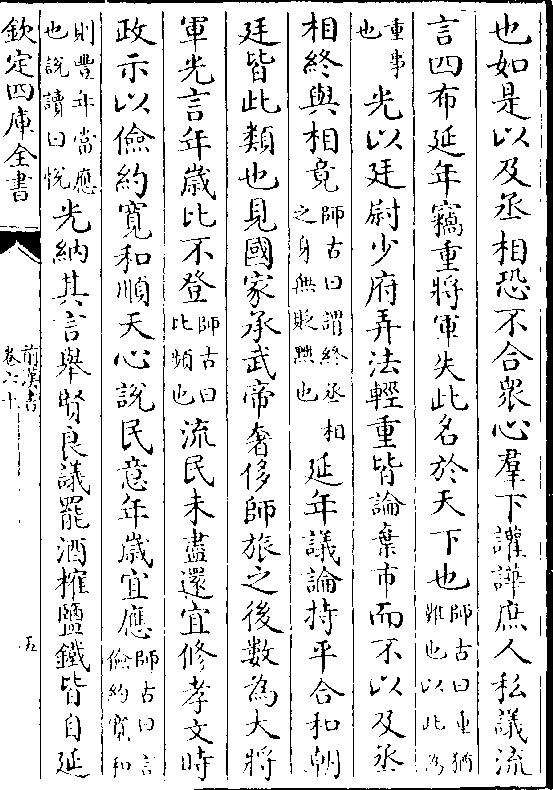 也如是以及丞相恐不合衆心羣下讙譁庶人私議流
言四布延年竊重將軍失此名於天下也師古曰重猶難也以此為
重事也光以廷尉少府弄法輕重皆論棄市而不以及丞
相終與相竟師古曰謂終丞相之身無貶黜也延年議論持平合和朝
廷皆此類也見國家承武帝奢侈師旅之後數為大將
軍光言年歲比不登師古曰比頻也流民未盡還宜修孝文時
政示以儉約寬和順天心說民意年歲宜應師古曰言儉約寬和
則豐年當應也說讀曰悅光納其言舉賢良議罷酒榷鹽鐵皆自延
欽定四庫全書
前漢書
卷六十
五